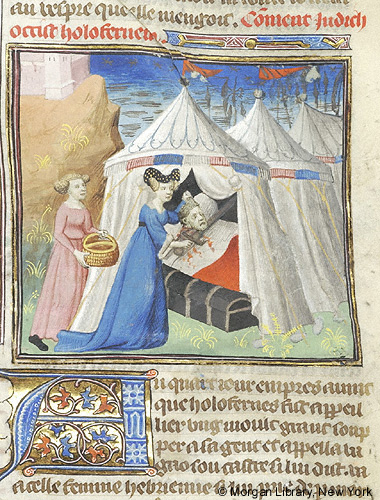 au vespre quelle mengoit. Coment Judich
occist holofernem
Au quart iour empres auint
que holofernes fist appeil
lier ung moult grant soup
per a sa gent et appella
gao son castre si lui dist. va
a celle femme hebrienne
© Morgan Library, New York